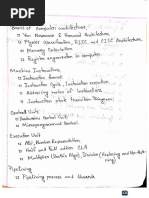 Basics of Computer Architecture
Von Neumann & Harvard Architecture
Flynn's Classification, RISC and CISC Architecture
Memory Subsystem
Register organization in computer
Machine Instructions
Instruction format
Instruction Cycle, Instruction execution
Addressing modes of instruction
Instruction state transition Diagram
Control Units
Hardwired Control Unit
Microprogrammed Control
Execution Unit
ALU, Number Representation
Half and Full adder CLA
Multiplier (Booth's Algo), Division (Restoring and Non-Restoring)
Pipelining
Pipelining process and